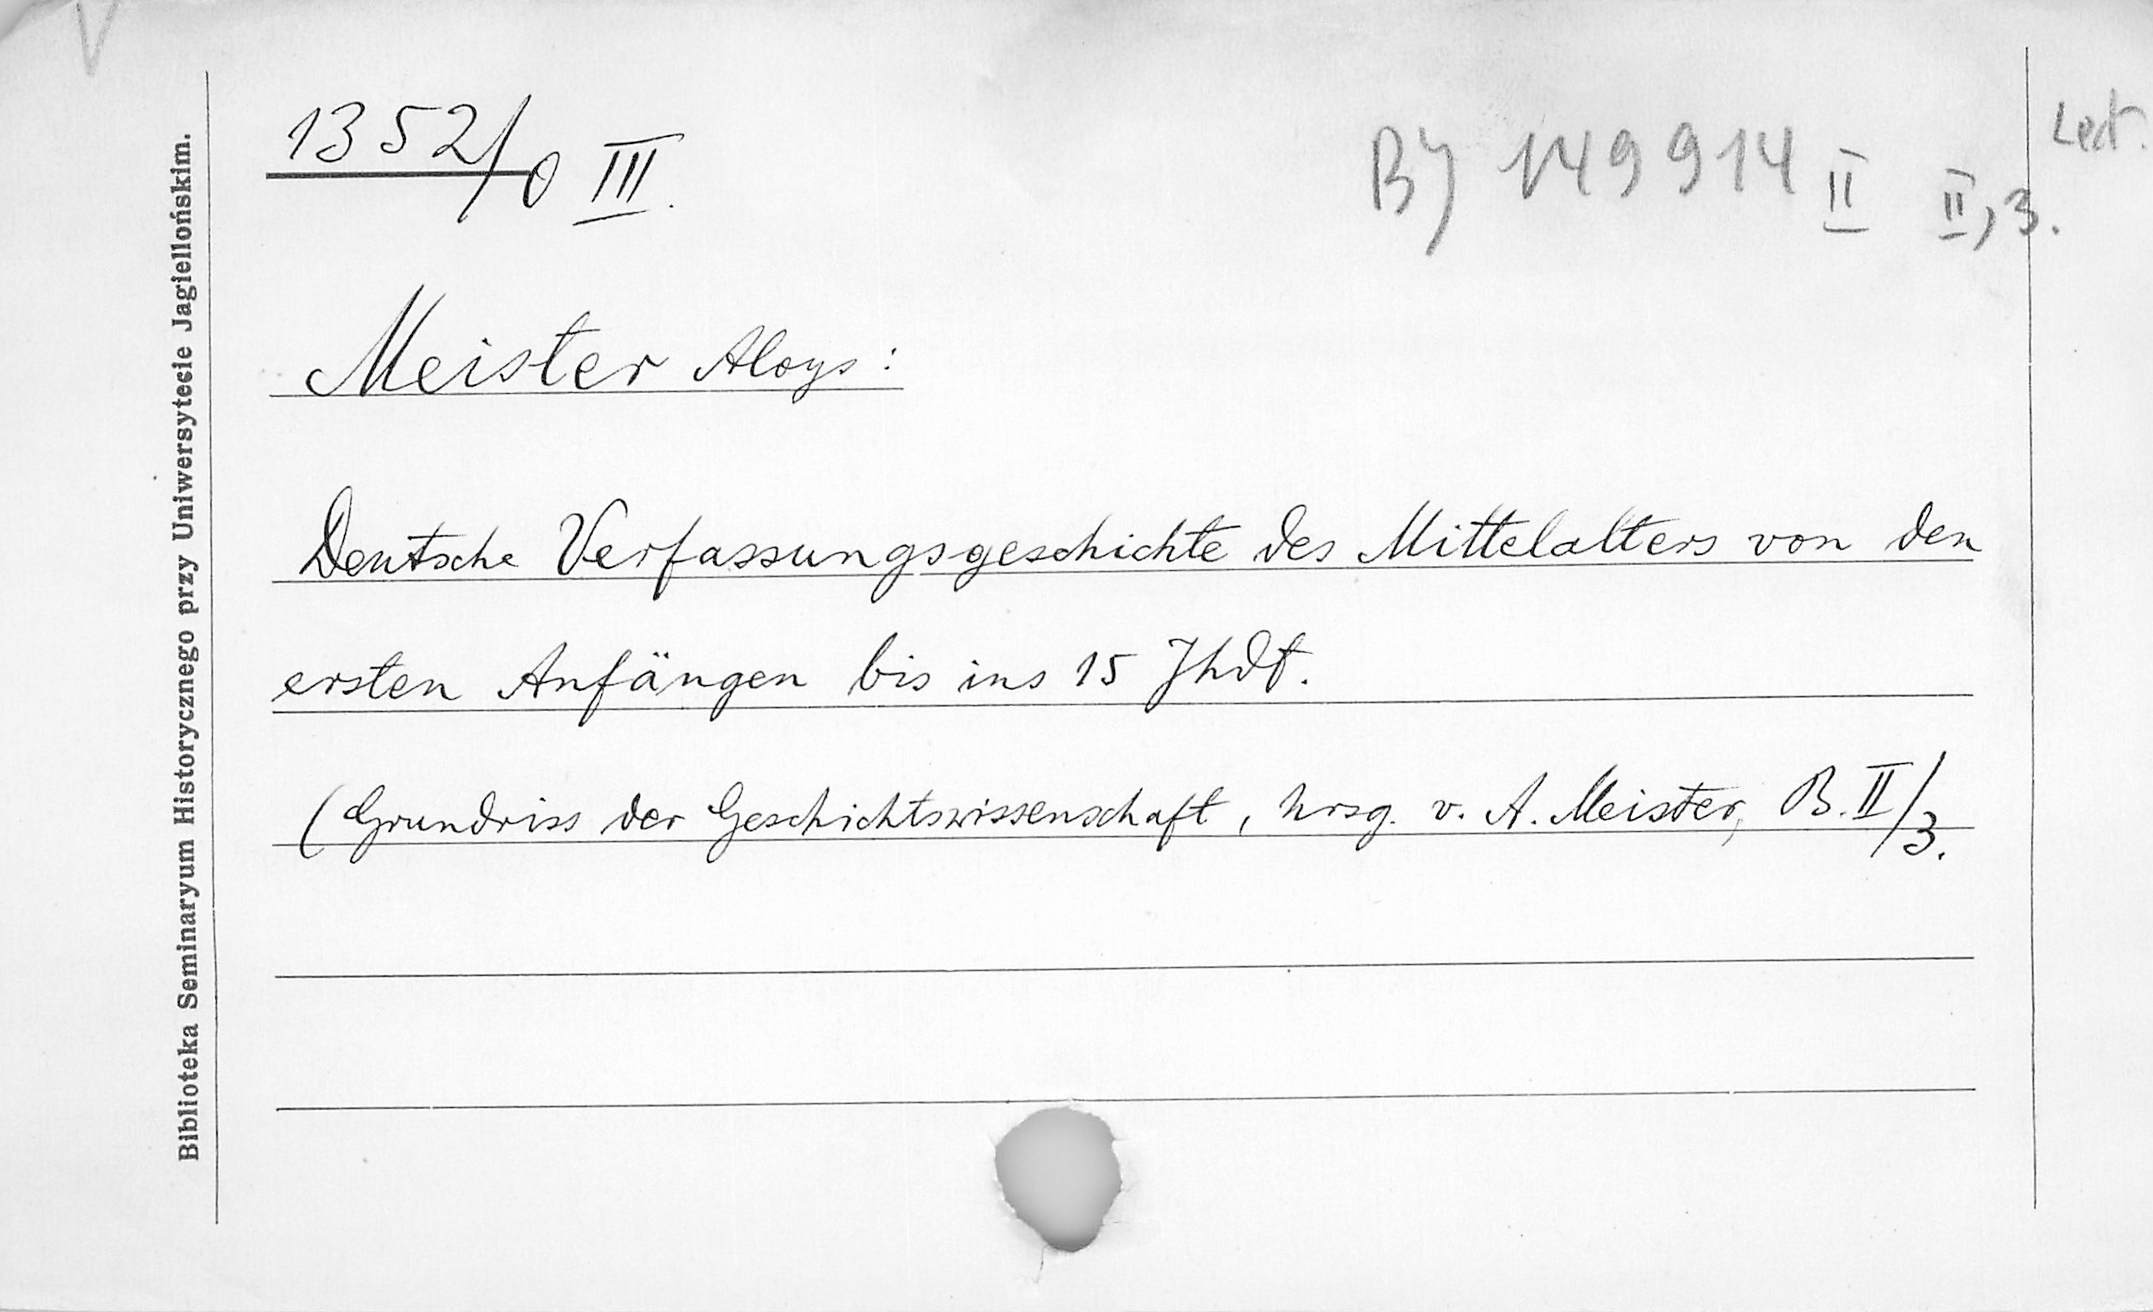 1352/0 III.
BJ 149914 II II, 3.
Lect.
Meister Aloys:
Deutsche Verfassungsgeschichte des Mittelalters von den
ersten Anfängen bis ins 15 Jhdt.
(Grundriss der Geschichtswissenschaft, hrsg. v. A. Meister, B. II/3.
Biblioteka Seminaryum Historycznego przy Uniwersytecie Jagiellońskim.